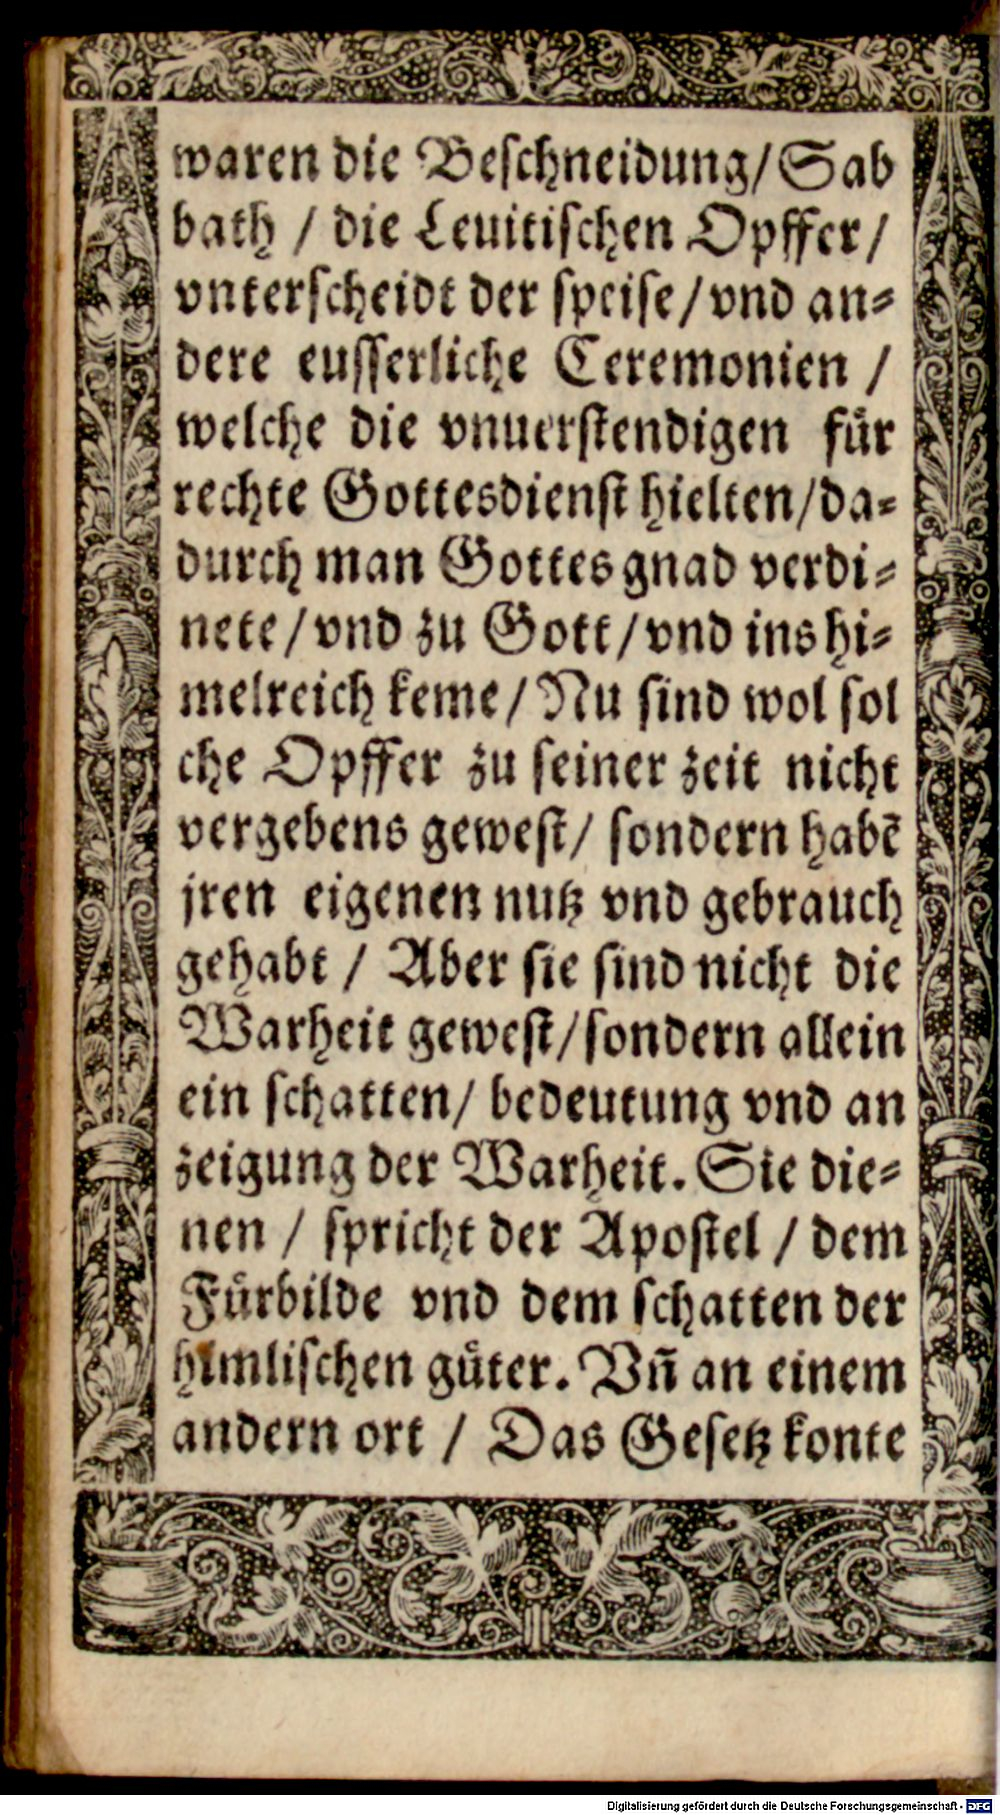 waren die Beſchneidung/ Sab
bath / die Leuitiſchen Opffer /
vnterſcheidt der ſpeiſe / vnd an⸗
dere euſſerliche Ceremonien /
welche die vnuerſtendigen fuͤr
rechte Gottesdienſt hielten / da⸗
durch man Gottes gnad verdi⸗
nete / vnd zu Gott / vnd ins hi⸗
melreich keme / Nu ſind wol ſol
che Opffer zu ſeiner zeit nicht
vergebens geweſt / ſondern habē
jren eigenen nutz vnd gebrauch
gehabt / Aber ſie ſind nicht die
Warheit geweſt / ſondern allein
ein ſchatten / bedeutung vnd an
zeigung der Warheit. Sie die⸗
nen / ſpricht der Apoſtel / dem
Fuͤrbilde vnd dem ſchatten der
himliſchen guͤter. Vn̄ an einem
andern ort / Das Geſetz konte
Digitalisierung gefördert durch die Deutsche Forschungsgemeinschaft - DFG